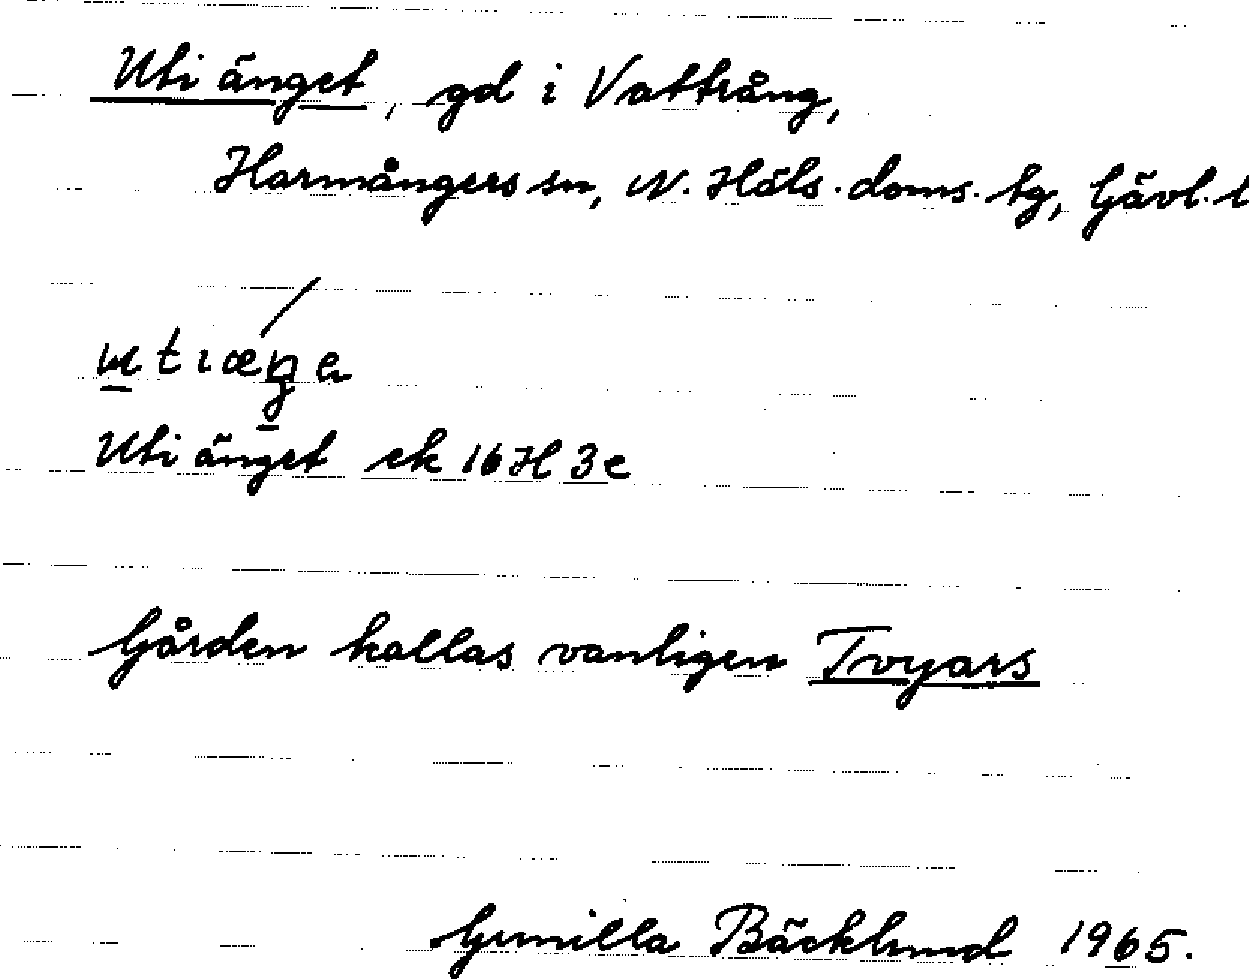 Uti änget, gd i Vattrång,
Harmångers sn, N. Häls. doms. tg, Gävl. l
Uti änget ek 16H 3e
Gården kallas vanligen Tvyars
Gunilla Bäcklund 1965.